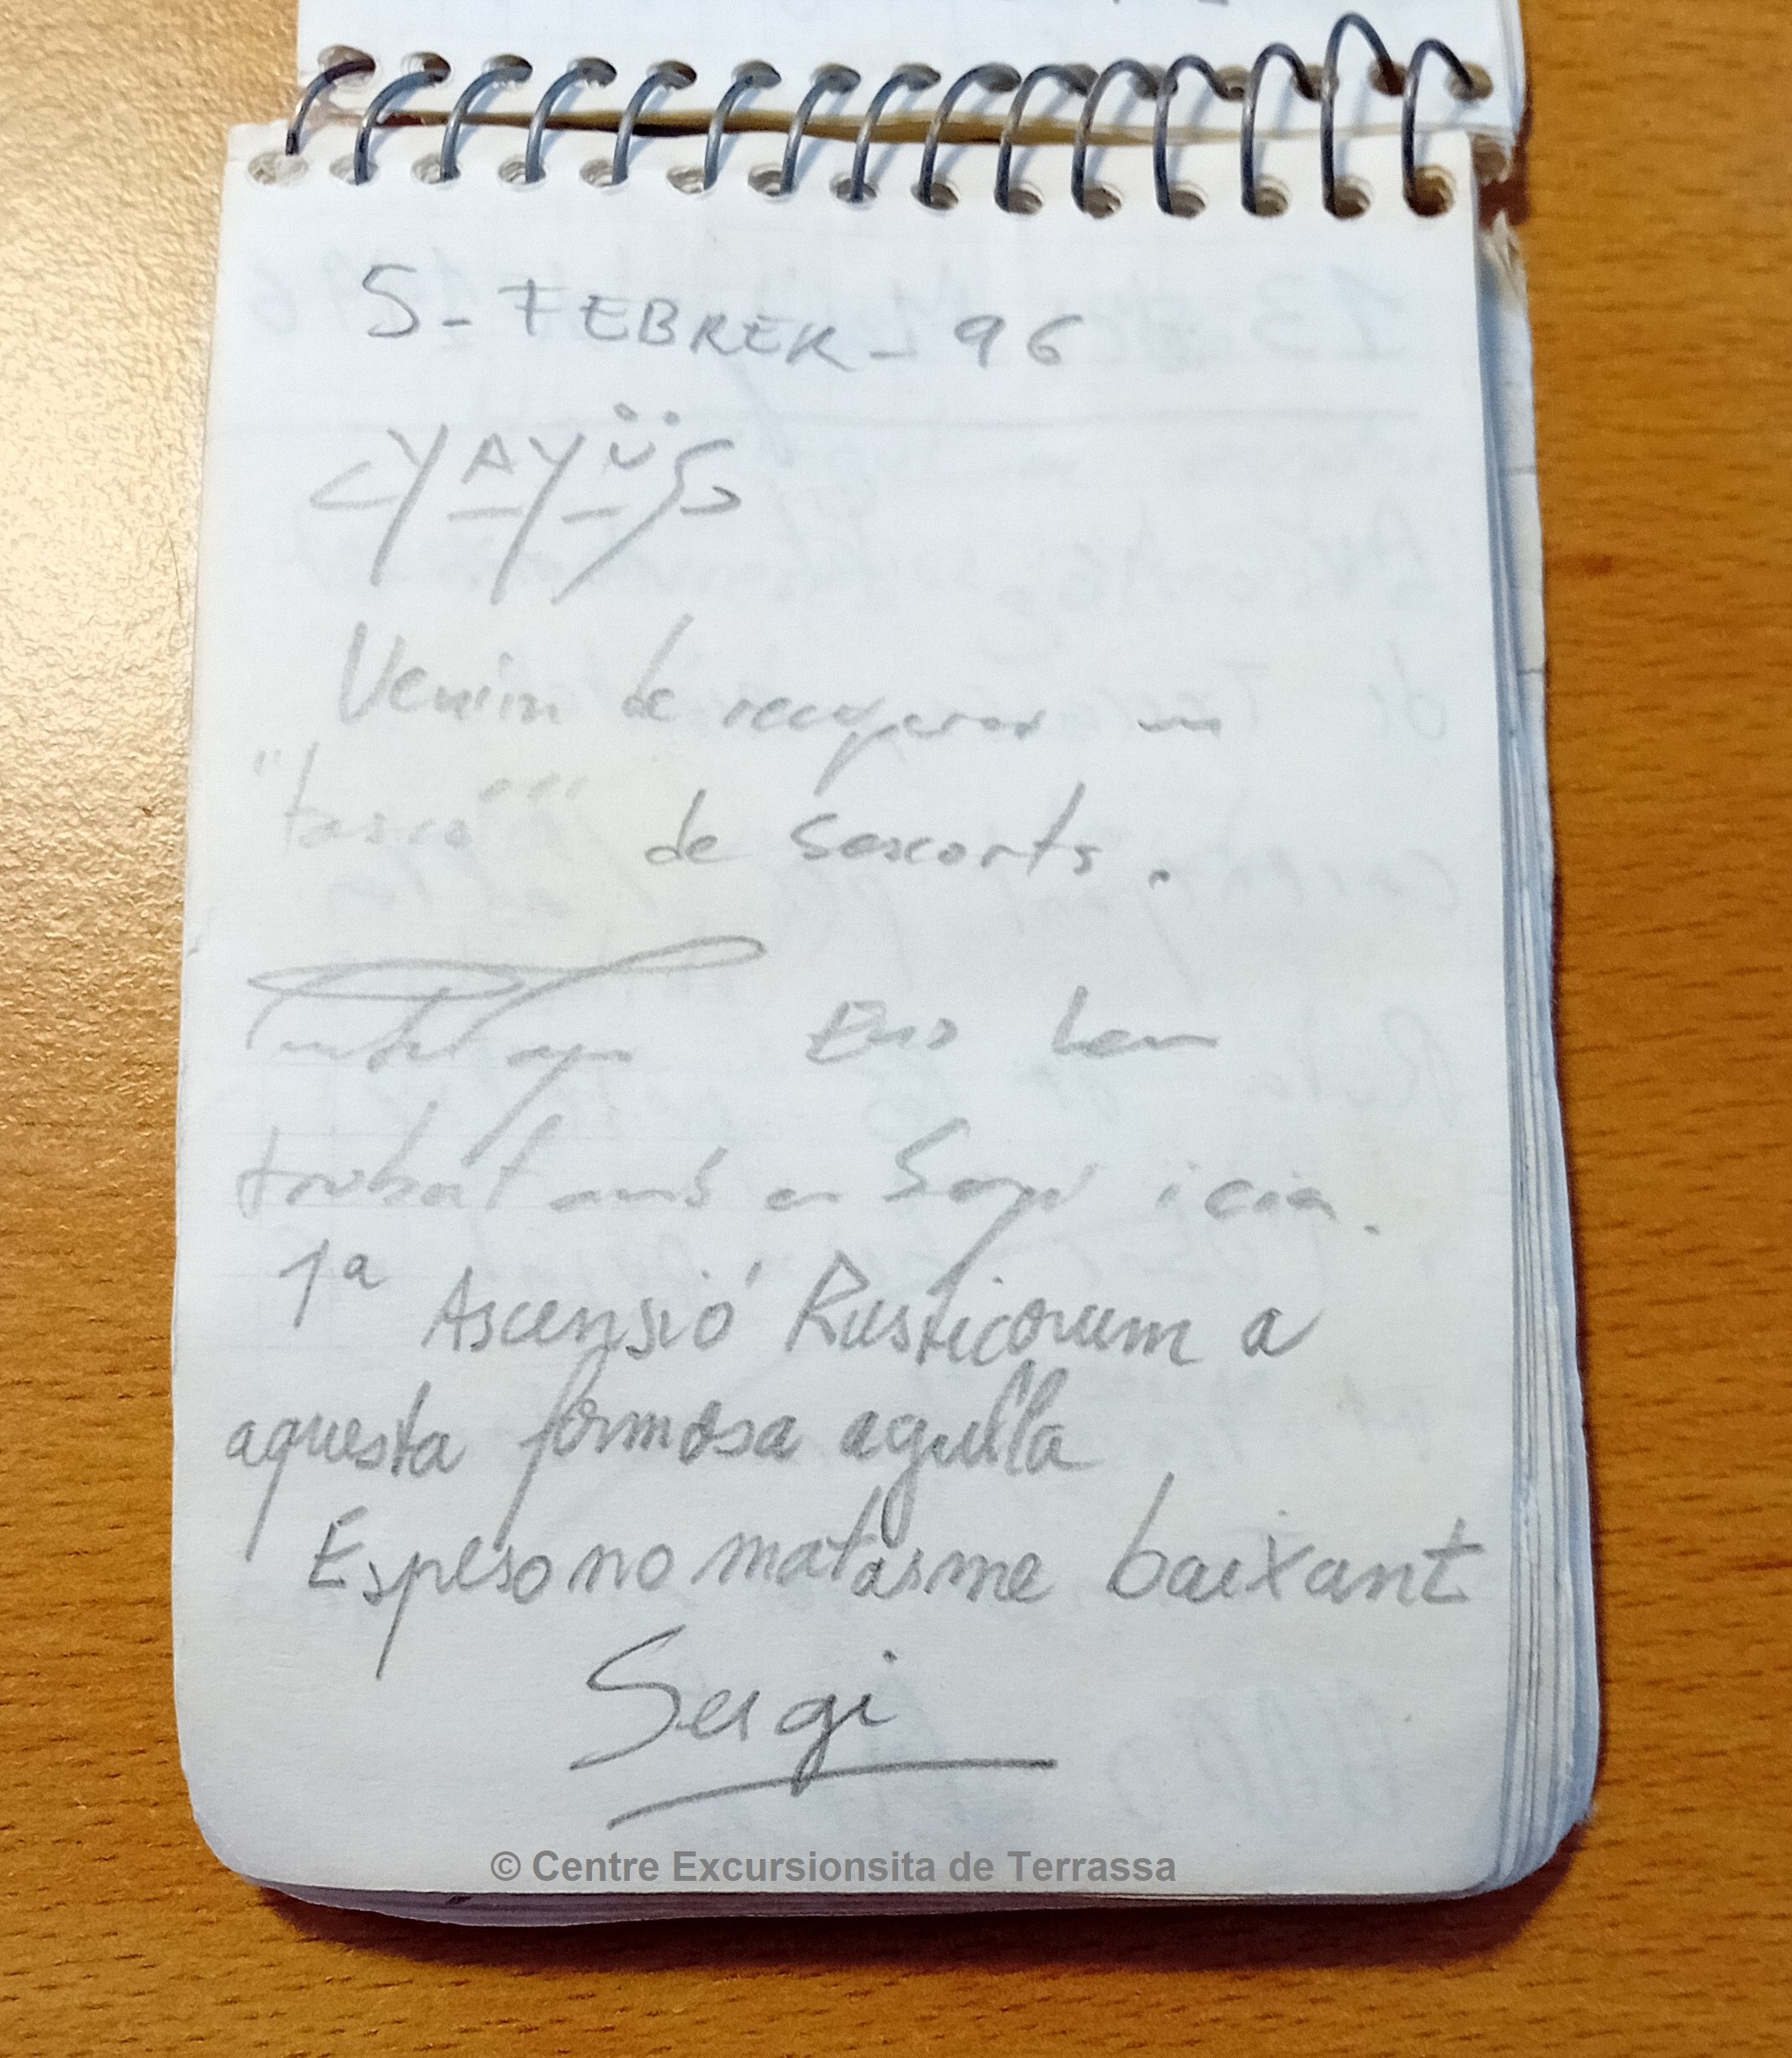 5-FEBRER-96
YAYÜS
Venim de recuperar un
"tascó" de Sescorts.
Ens hem
trobat amb en Sergi i cia.
1ª Ascensió Rusticorum a
aquesta formosa agulla
Espero no matarme baixant
Sergi
© Centre Excursionsita de Terrassa